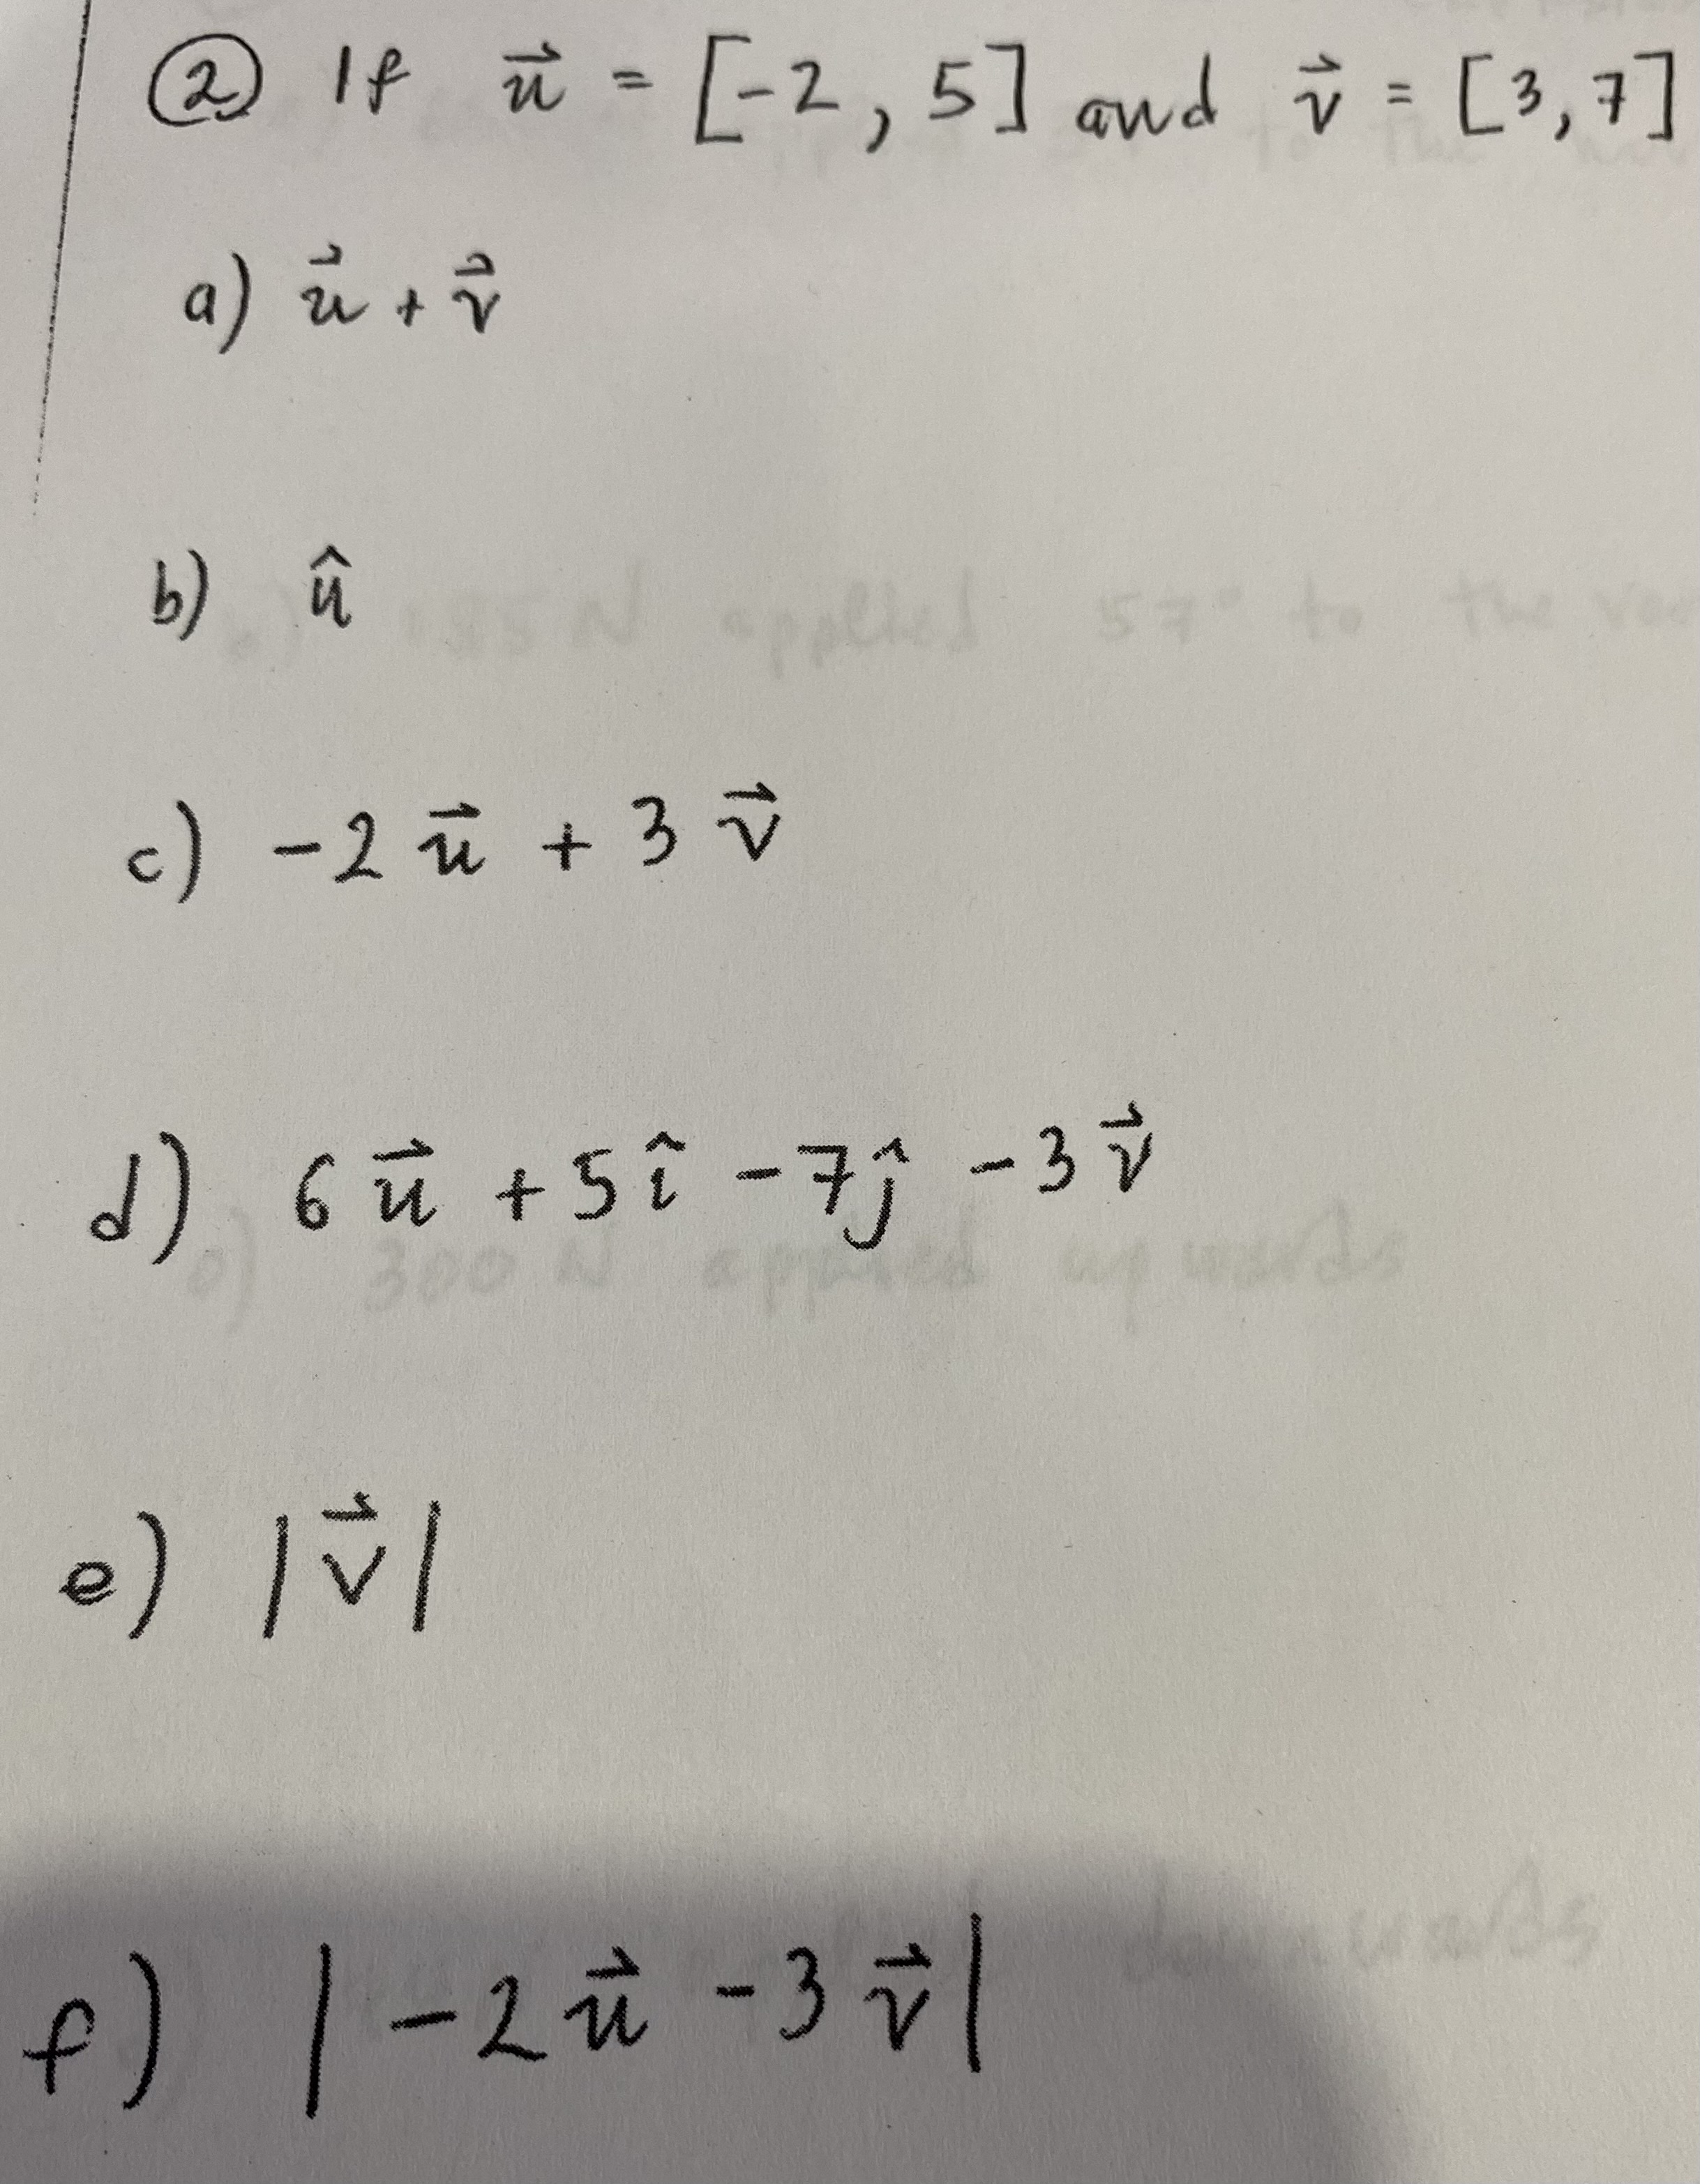 ② If u⃗ = [-2, 5] and v⃗ = [3, 7]
a) u⃗ + v⃗
b) û
c) -2u⃗ + 3v⃗
d) 6u⃗ + 5î - 7ĵ - 3v⃗
e) |v⃗|
f) |-2u⃗ - 3v⃗|